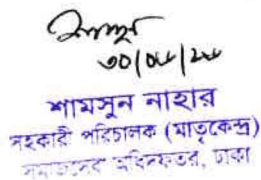 ৩০/০৬/২৪
শামসুন নাহার
সহকারী পরিচালক (মাতৃকেন্দ্র)
সমাজসেবা অধিদফতর, ঢাকা